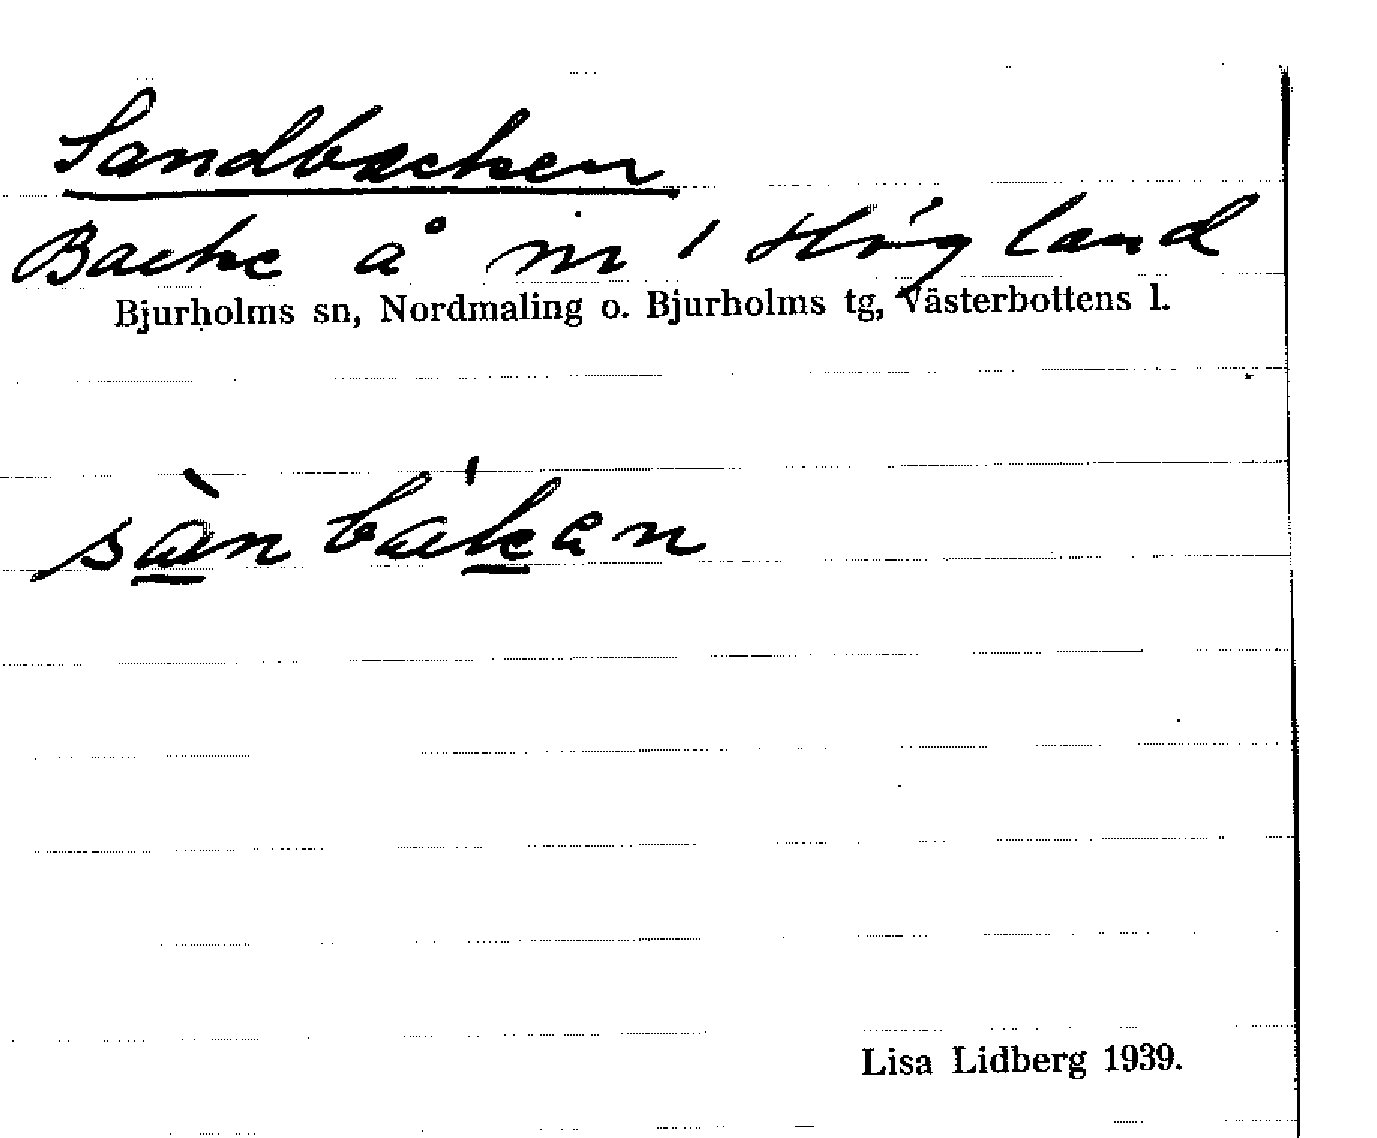 Sandbacken
Backe å in 1 Högland
Bjurholms sn, Nordmaling o. Bjurholms tg, Västerbottens l.
sànbákan
Lisa Lidberg 1939.